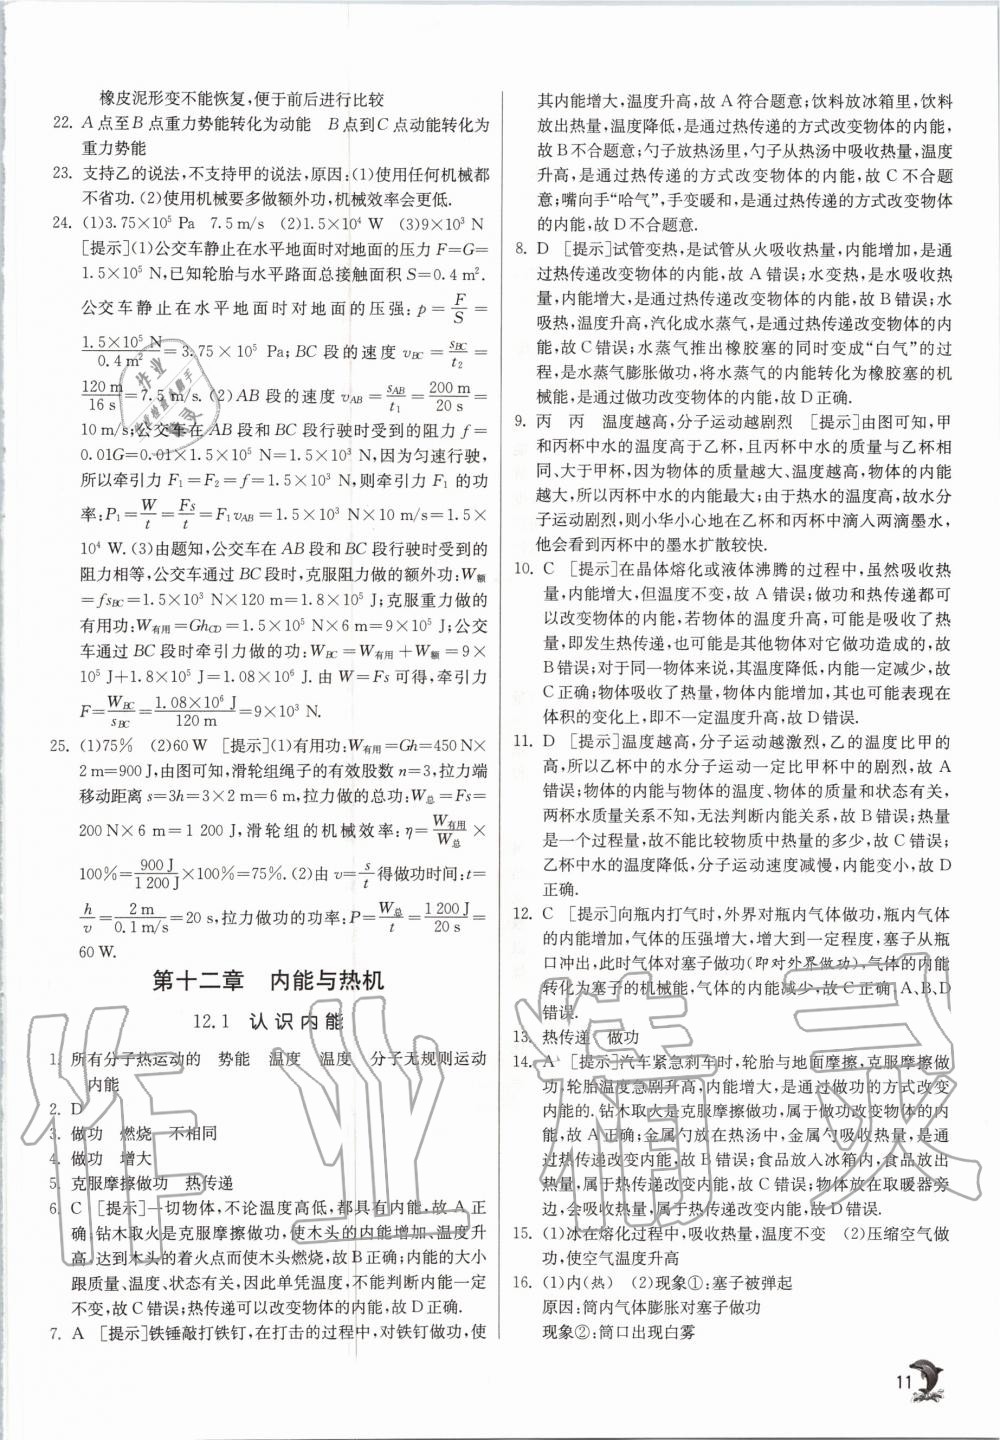 橡皮泥形变不能恢复,便于前后进行比较
22. A点至B点重力势能转化为动能　B点到C点动能转化为
重力势能
23. 支持乙的说法,不支持甲的说法,原因:(1)使用任何机械都
不省功.(2)使用机械要多做额外功,机械效率会更低.
24. (1)3.75×10⁵ Pa　7.5 m/s　(2)1.5×10⁴ W　(3)9×10³ N
[提示](1)公交车静止在水平地面时对地面的压力F=G=
1.5×10⁵ N,已知轮胎与水平路面总接触面积S=0.4 m².
公交车静止在水平地面时对地面的压强:p=F/S=
1.5×10⁵ N/0.4 m²=3.75×10⁵ Pa;BC段的速度v_BC=s_BC/t₂=
120 m/16 s=7.5 m/s.(2)AB段的速度v_AB=s_AB/t₁=200 m/20 s=
10 m/s;公交车在AB段和BC段行驶时受到的阻力f=
0.01G=0.01×1.5×10⁵ N=1.5×10³ N,因为匀速行驶,
所以牵引力F₁=F₂=f=1.5×10³ N,则牵引力F₁的功
率:P₁=W/t=Fs/t=F₁v_AB=1.5×10³ N×10 m/s=1.5×
10⁴ W.(3)由题知,公交车在AB段和BC段行驶时受到的
阻力相等,公交车通过BC段时,克服阻力做的额外功:W额
=fs_BC=1.5×10³ N×120 m=1.8×10⁵ J;克服重力做的
有用功:W有用=Gh_CD=1.5×10⁵ N×6 m=9×10⁵ J;公交
车通过BC段时牵引力做的功:W_BC=W有用+W额=9×
10⁵ J+1.8×10⁵ J=1.08×10⁶ J.由W=Fs可得,牵引力
F=W_BC/s_BC=1.08×10⁶ J/120 m=9×10³ N.
25. (1)75%　(2)60 W　[提示](1)有用功:W有用=Gh=450 N×
2 m=900 J,由图可知,滑轮组绳子的有效股数n=3,拉力端
移动距离s=3h=3×2 m=6 m,拉力做的总功:W总=Fs=
200 N×6 m=1 200 J,滑轮组的机械效率:η=W有用/W总×
100%=900 J/1 200 J×100%=75%.(2)由v=s/t得做功时间:t=
h/v=2 m/0.1 m/s=20 s,拉力做功的功率:P=W总/t=1 200 J/20 s=
60 W.
第十二章　内能与热机
12.1　认识内能
1. 所有分子热运动的　势能　温度　温度　分子无规则运动
内能
2. D
3. 做功　燃烧　不相同
4. 做功　增大
5. 克服摩擦做功　热传递
6. C　[提示]一切物体,不论温度高低,都具有内能,故A正
确;钻木取火是克服摩擦做功,使木头的内能增加、温度升
高,达到木头的着火点而使木头燃烧,故B正确;内能的大小
跟质量、温度、状态有关,因此单凭温度,不能判断内能一定
不变,故C错误;热传递可以改变物体的内能,故D正确.
7. A　[提示]铁锤敲打铁钉,在打击的过程中,对铁钉做功,使
其内能增大,温度升高,故A符合题意;饮料放冰箱里,饮料
放出热量,温度降低,是通过热传递的方式改变物体的内能,
故B不合题意;勺子放热汤里,勺子从热汤中吸收热量,温度
升高,是通过热传递的方式改变物体的内能,故C不合题
意;嘴向手“哈气”,手变暖和,是通过热传递的方式改变物体
的内能,故D不合题意.
8. D　[提示]试管变热,是试管从火吸收热量,内能增加,是通
过热传递改变物体的内能,故A错误;水变热,是水吸收热
量,内能增加,是通过热传递改变物体的内能,故B错误;水
吸热,温度升高,汽化成水蒸气,是通过热传递改变物体的内
能,故C错误;水蒸气推出橡胶塞的同时变成“白气”的过
程,是水蒸气膨胀做功,将水蒸气的内能转化为橡胶塞的机
械能,是通过做功改变物体的内能,故D正确.
9. 丙　丙　温度越高,分子运动越剧烈　[提示]由图可知,甲
和丙杯中水的温度高于乙杯,且丙杯中水的质量与乙杯相
同、大于甲杯,因为物体的质量越大、温度越高,物体的内能
越大,所以丙杯中水的内能最大;由于热水的温度高,故水分
子运动剧烈,则小华小心地在乙杯和丙杯中滴入两滴墨水,
他会看到丙杯中的墨水扩散较快.
10. C　[提示]在晶体熔化或液体沸腾的过程中,虽然吸收热
量,内能增大,但温度不变,故A错误;做功和热传递都可
以改变物体的内能,若物体的温度升高,可能是吸收了热
量,即发生热传递,也可能是其他物体对它做功造成的,故
B错误;对于同一物体来说,其温度降低,内能一定减少,故
C正确;物体吸收了热量,物体内能增加,其也可能表现在
体积的变化上,即不一定温度升高,故D错误.
11. D　[提示]温度越高,分子运动越激烈,乙的温度比甲的
高,所以乙杯中的水分子运动一定比甲杯中的剧烈,故A
错误;物体的内能与物体的温度、质量和状态有关,
两杯水质量关系不知,无法判断内能关系,故B错误;热量
是一个过程量,故不能比较物质中热量的多少,故C错误;
乙杯中水的温度降低,分子运动速度减慢,内能变小,故D
正确.
12. C　[提示]向瓶内打气时,外界对瓶内气体做功,瓶内气体
的内能增加,气体的压强增大,增大到一定程度,塞子从瓶
口冲出,此时气体对塞子做功(即对外界做功),气体的内能
转化为塞子的机械能,气体的内能减少,故C正确,A、B、D
错误.
13. 热传递　做功
14. A　[提示]汽车紧急刹车时,轮胎与地面摩擦,克服摩擦做
功,轮胎温度急剧升高,内能增大,是通过做功的方式改变
内能的.钻木取火是克服摩擦做功,属于做功改变物体的内
能,故A正确;金属勺放在热汤中,金属勺吸收热量,属于
热传递改变内能,故B错误;食品放入冰箱内,食品放出热
量,属于热传递改变内能,故C错误;物体放在取暖器旁
边,会吸收热量,属于热传递改变内能,故D错误.
15. (1)冰在熔化过程中,吸收热量,温度不变　(2)压缩空气做
功,使空气温度升高
16. (1)内(热)　(2)现象①:塞子被弹起
原因:筒内气体膨胀对塞子做功
现象②:筒口出现白雾
11
作业精灵